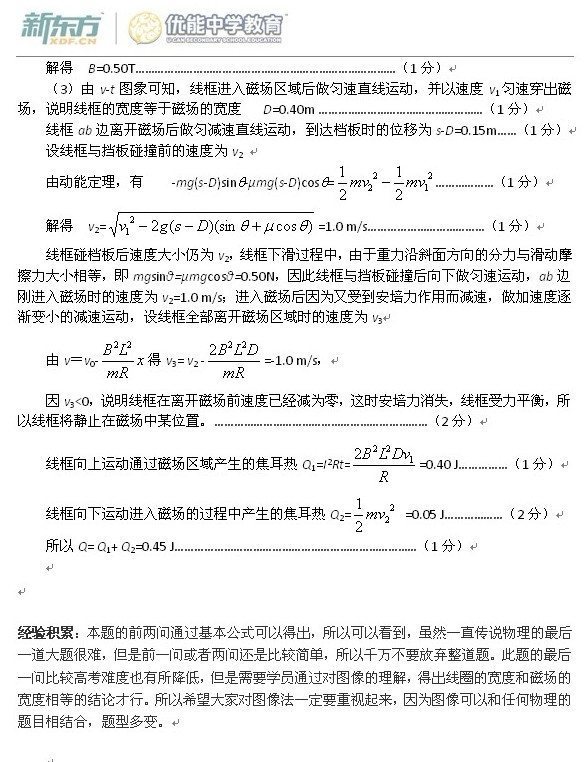 新东方 优能中学教育
XDF.CN U-CAN SECONDARY SCHOOL EDUCATION
解得 B=0.50T……………………………………………………………（1 分）
（3）由 v-t 图象可知，线框进入磁场区域后做匀速直线运动，并以速度 v₁匀速穿出磁
场，说明线框的宽度等于磁场的宽度 D=0.40m ……………………………………（1 分）
线框 ab 边离开磁场后做匀减速直线运动，到达档板时的位移为 s-D=0.15m……（1 分）
设线框与挡板碰撞前的速度为 v₂
由动能定理，有 -mg(s-D)sinθ-μmg(s-D)cosθ=\frac{1}{2}mv_2^2-\frac{1}{2}mv_1^2………………（1 分）
解得 v₂=\sqrt{v_1^2-2g(s-D)(sinθ+μcosθ)} =1.0 m/s………………………………（1 分）
线框碰档板后速度大小仍为 v₂，线框下滑过程中，由于重力沿斜面方向的分力与滑动摩
擦力大小相等，即 mgsinθ=μmgcosθ=0.50N，因此线框与挡板碰撞后向下做匀速运动，ab 边
刚进入磁场时的速度为 v₂=1.0 m/s；进入磁场后因为又受到安培力作用而减速，做加速度逐
渐变小的减速运动，设线框全部离开磁场区域时的速度为 v₃
由 v＝v₀-\frac{B^2L^2}{mR}x 得 v₃= v₂ -\frac{2B^2L^2D}{mR}=-1.0 m/s，
因 v₃<0，说明线框在离开磁场前速度已经减为零，这时安培力消失，线框受力平衡，所
以线框将静止在磁场中某位置。………………………………………………（2 分）
线框向上运动通过磁场区域产生的焦耳热 Q₁=I²Rt=\frac{2B^2L^2Dv_1}{R} =0.40 J……………（1 分）
线框向下运动进入磁场的过程中产生的焦耳热 Q₂=\frac{1}{2}mv_2^2 =0.05 J………………（2 分）
所以 Q= Q₁+ Q₂=0.45 J………………………………………………………………（1 分）
经验积累：本题的前两问通过基本公式可以得出，所以可以看到，虽然一直传说物理的最后
一道大题很难，但是前一问或者两问还是比较简单，所以千万不要放弃整道题。此题的最后
一问比较高考难度也有所降低，但是需要学员通过对图像的理解，得出线圈的宽度和磁场的
宽度相等的结论才行。所以希望大家对图像法一定要重视起来，因为图像可以和任何物理的
题目相结合，题型多变。